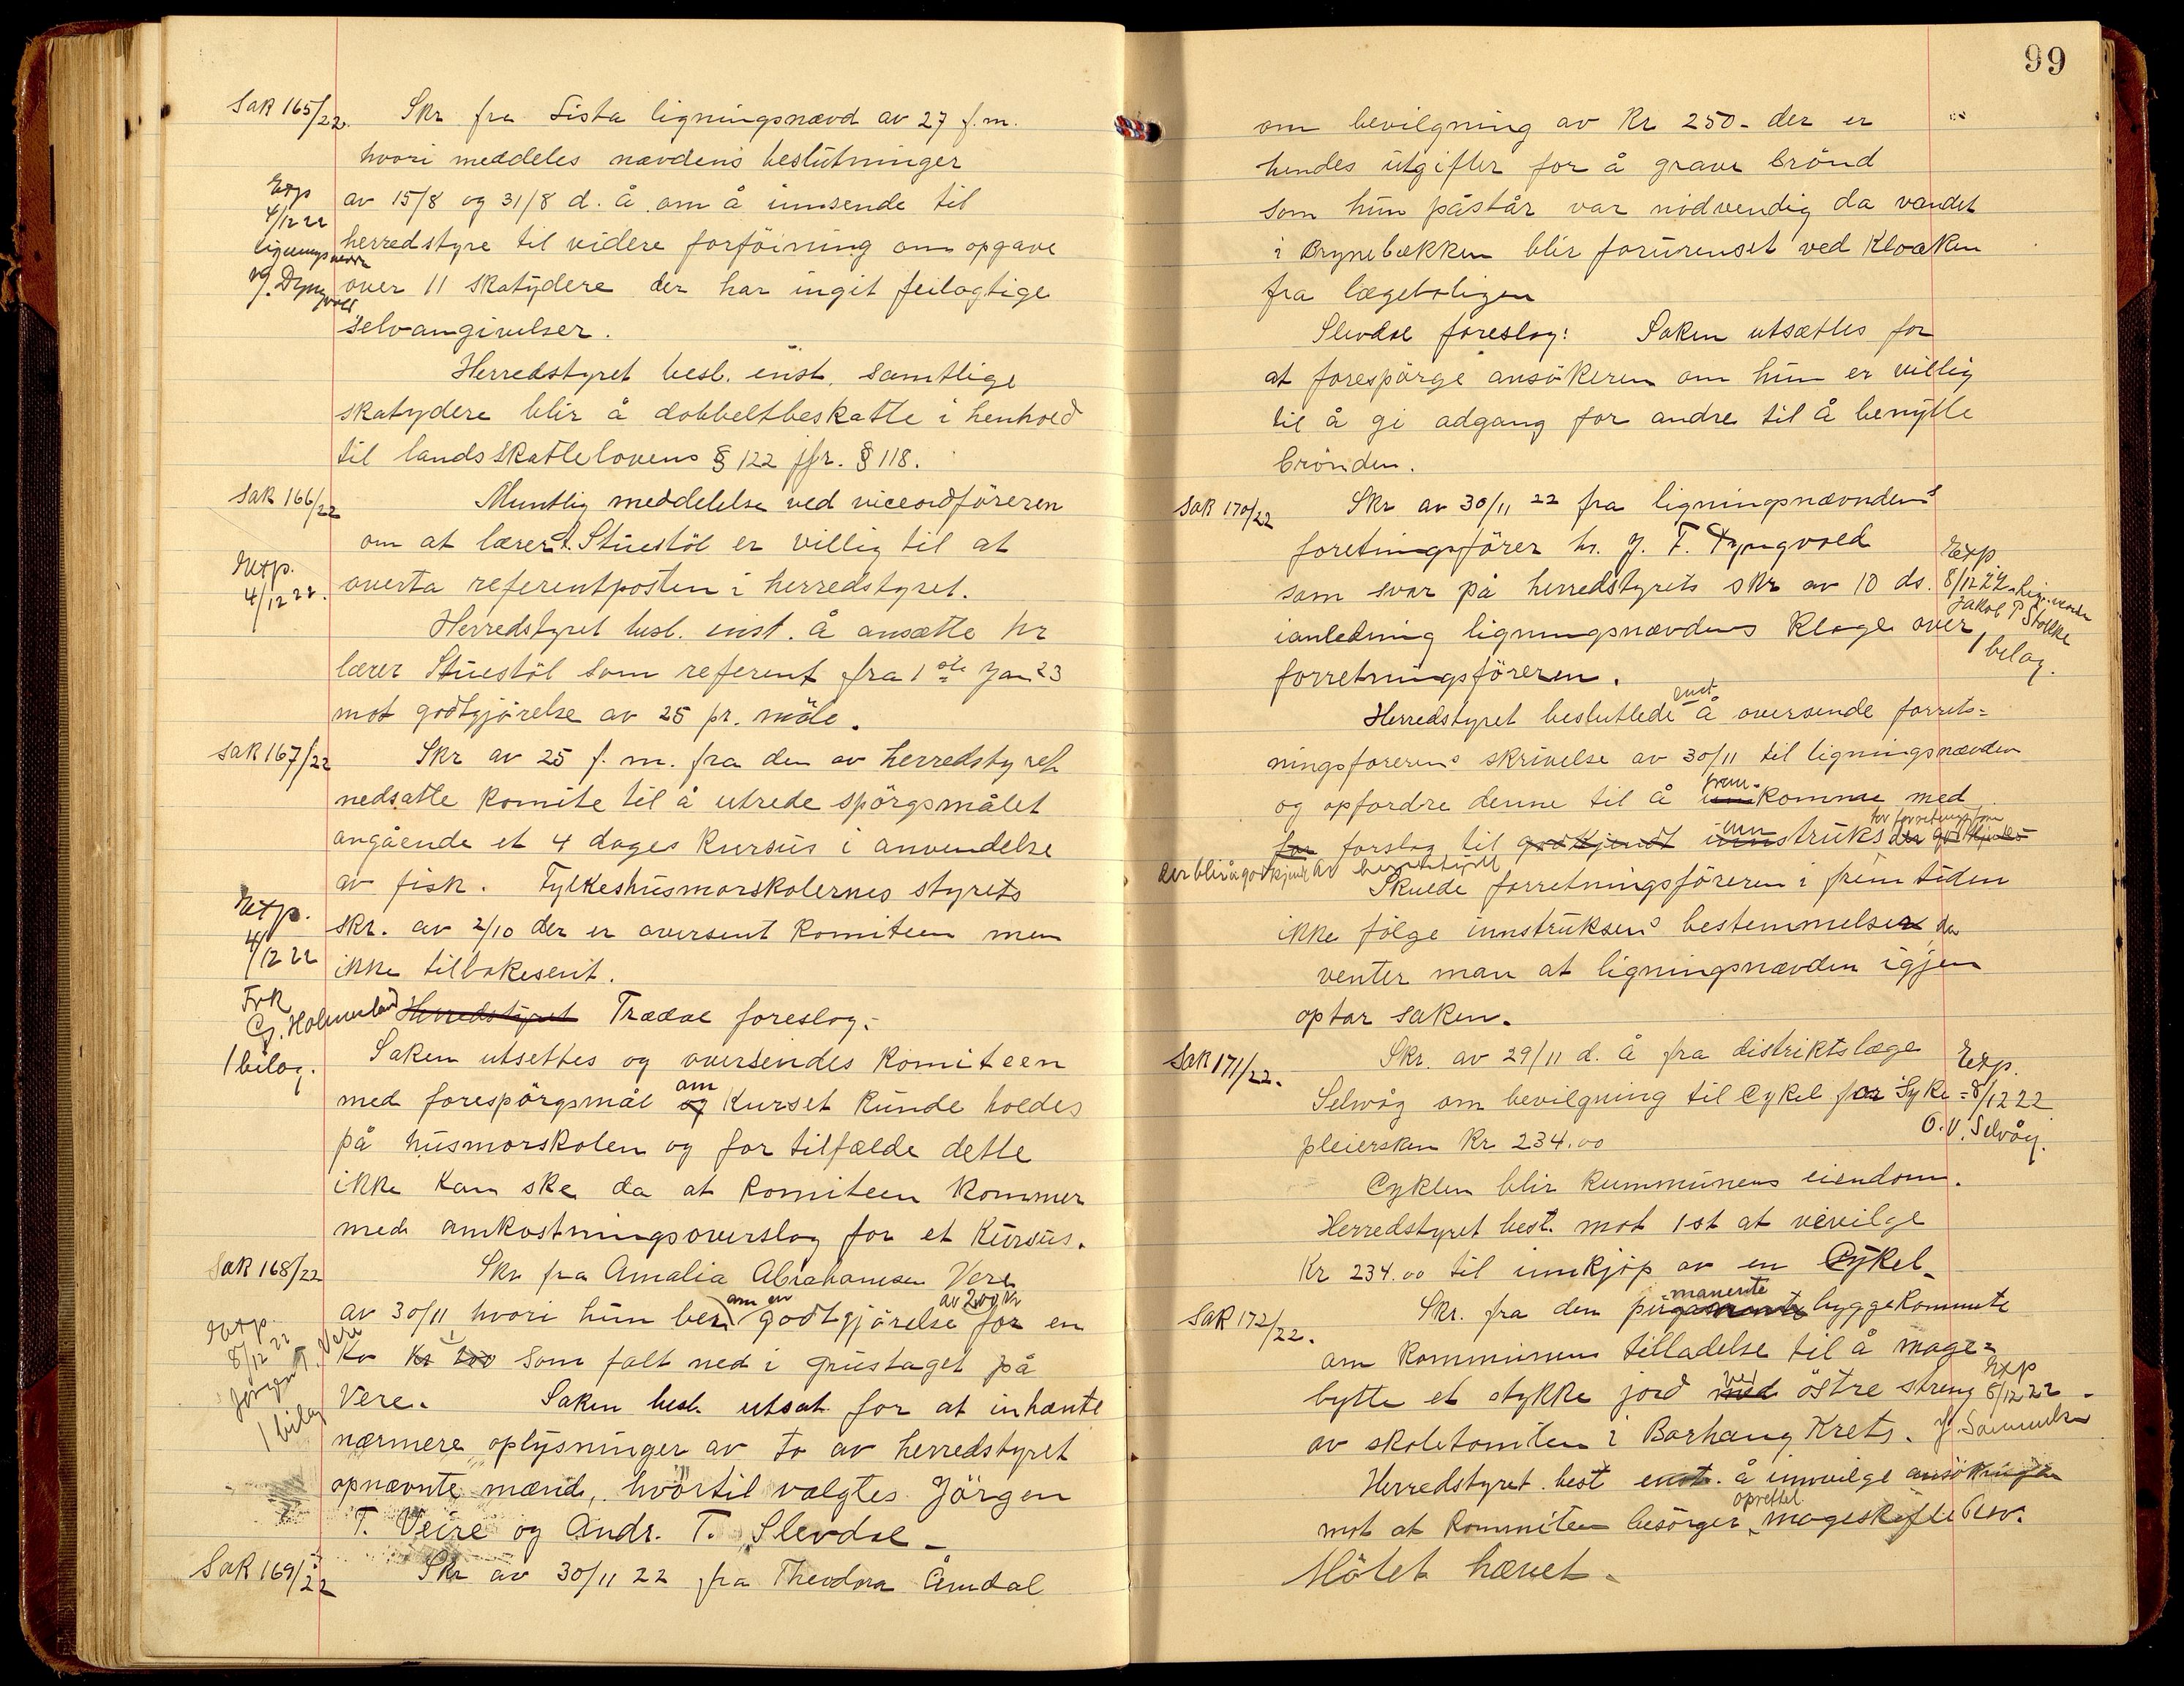 Sak 165/22. Skr fra Lista ligningsnævd av 27 f.m.
hvori meddeles nævdens beslutninger
av 15/8 og 31/8 d. å. om å innsende til
herredstyre til videre forföining om opgave
over 11 skatydere der har ingit feilagtige
selvangivelser.
Exp
4/12 22
ligningsnevn
Herredstyret besl. enst. samtlige
skatydere blir å dobbeltbeskatte i henhold
til landsskattelovens § 122 jfr. § 118.
Sak 166/22 Muntlig meddelelse ved viceordföreren
om at lærer Stuestöl er villig til at
overta referentposten i herredstyret.
Exp.
4/12 22.
Herredstyret besl. enst. å ansætte hr
lærer Stuestöl som referent fra 1ste Jan 23
mot godtgjörelse av 25 pr. möte.
Sak 167/22 Skr av 25 f. m. fra den av herredstyret
nedsatte komite til å utrede spörgsmålet
angående et 4 dages kursus i anvendelse
av fisk. Fylkeshusmorskolernes styrets
skr. av 2/10 der er oversent komiteen men
ikke tilbakesent.
Exp.
4/12 22
Frk
G. Holmenland
1 bilag.
Herredstyret Trædal foreslog:
Saken utsettes og oversendes komiteen
med forespörgsmål og om kurset kunde holdes
på husmorskolen og for tilfælde dette
ikke kan ske da at komiteen kommer
med omkostningsoverslag for et kursus.
Sak 168/22 Skr fra Amalia Abrahamsen Vere
av 30/11 hvori hun ber om en godtgjörelse av 200 kr for en
ko kr 200 som falt ned i grustaget på
Vere. Saken besl. utsat for at inhente
nærmere oplysninger av to av herredstyret
opnævnte mænd, hvortil valgtes Jörgen
T. Veire og Andr. T. Slevdal
Exp.
8/12 22
Jörgen T. Vere
1 bilag
Sak 169/22 Skr av 30/11 22 fra Theodora Åmdal
99
om bevilgning av Kr 250- der er
hendes utgifter for å grave brönd
som hun påstår var nödvendig da vandet
i Brynebækken blir forurenset ved kloaken
fra lægeboligen
Slevdal foreslog: Saken utsættes for
at forespörge ansökeren om hun er villig
til å gi adgang for andre til å benytte
brönden.
Sak 170/22 Skr av 30/11 22 fra ligningsnævndens
foretningsförer hr. J. F. Dyngvold
som svar på herredstyrets skr av 10 ds.
ianledning ligningsnævdens klage over
forretningsföreren.
Exp
8/12 22
Jakob P Stokke
1 belag.
Herredstyret besluttede enst. å oversende forret=
ningsforerens skrivelse av 30/11 til ligningsnævden
og opfordre denne til å inn frem-komme med
for forslag til godkjendt innstruks for forretningsfører
der blir å godkjende av herredstyret
Skulde forretningsföreren i fremtiden
ikke fölge innstruksens bestemmelser, da
venter man at ligningsnævden igjen
optar saken.
Sak 171/22. Skr. av 29/11 d. å fra distriktslæge
Selvåg om bevilgning til Cykel for Syke=
pleiersken Kr 234.00
Exp.
8/12 22
O. V. Selvåg.
Cyklen blir kummunens eiendom.
Herredstyret besl. mot 1 st at vevilge
Kr 234.00 til innkjöp av en Cykel
Sak 172/22. Skr. fra den permanente byggekommite
om kommunens tilladelse til å mage=
bytte et stykke jord med ved östre streng
av skoletomten i Borhaug Krets.
Exp
8/12 22
J. Samuelsen
Herredstyret besl enst. å innvilge ansökningen
mot at kommiteen besörger oprettet mageskiftebrev.
Mötet hævet.